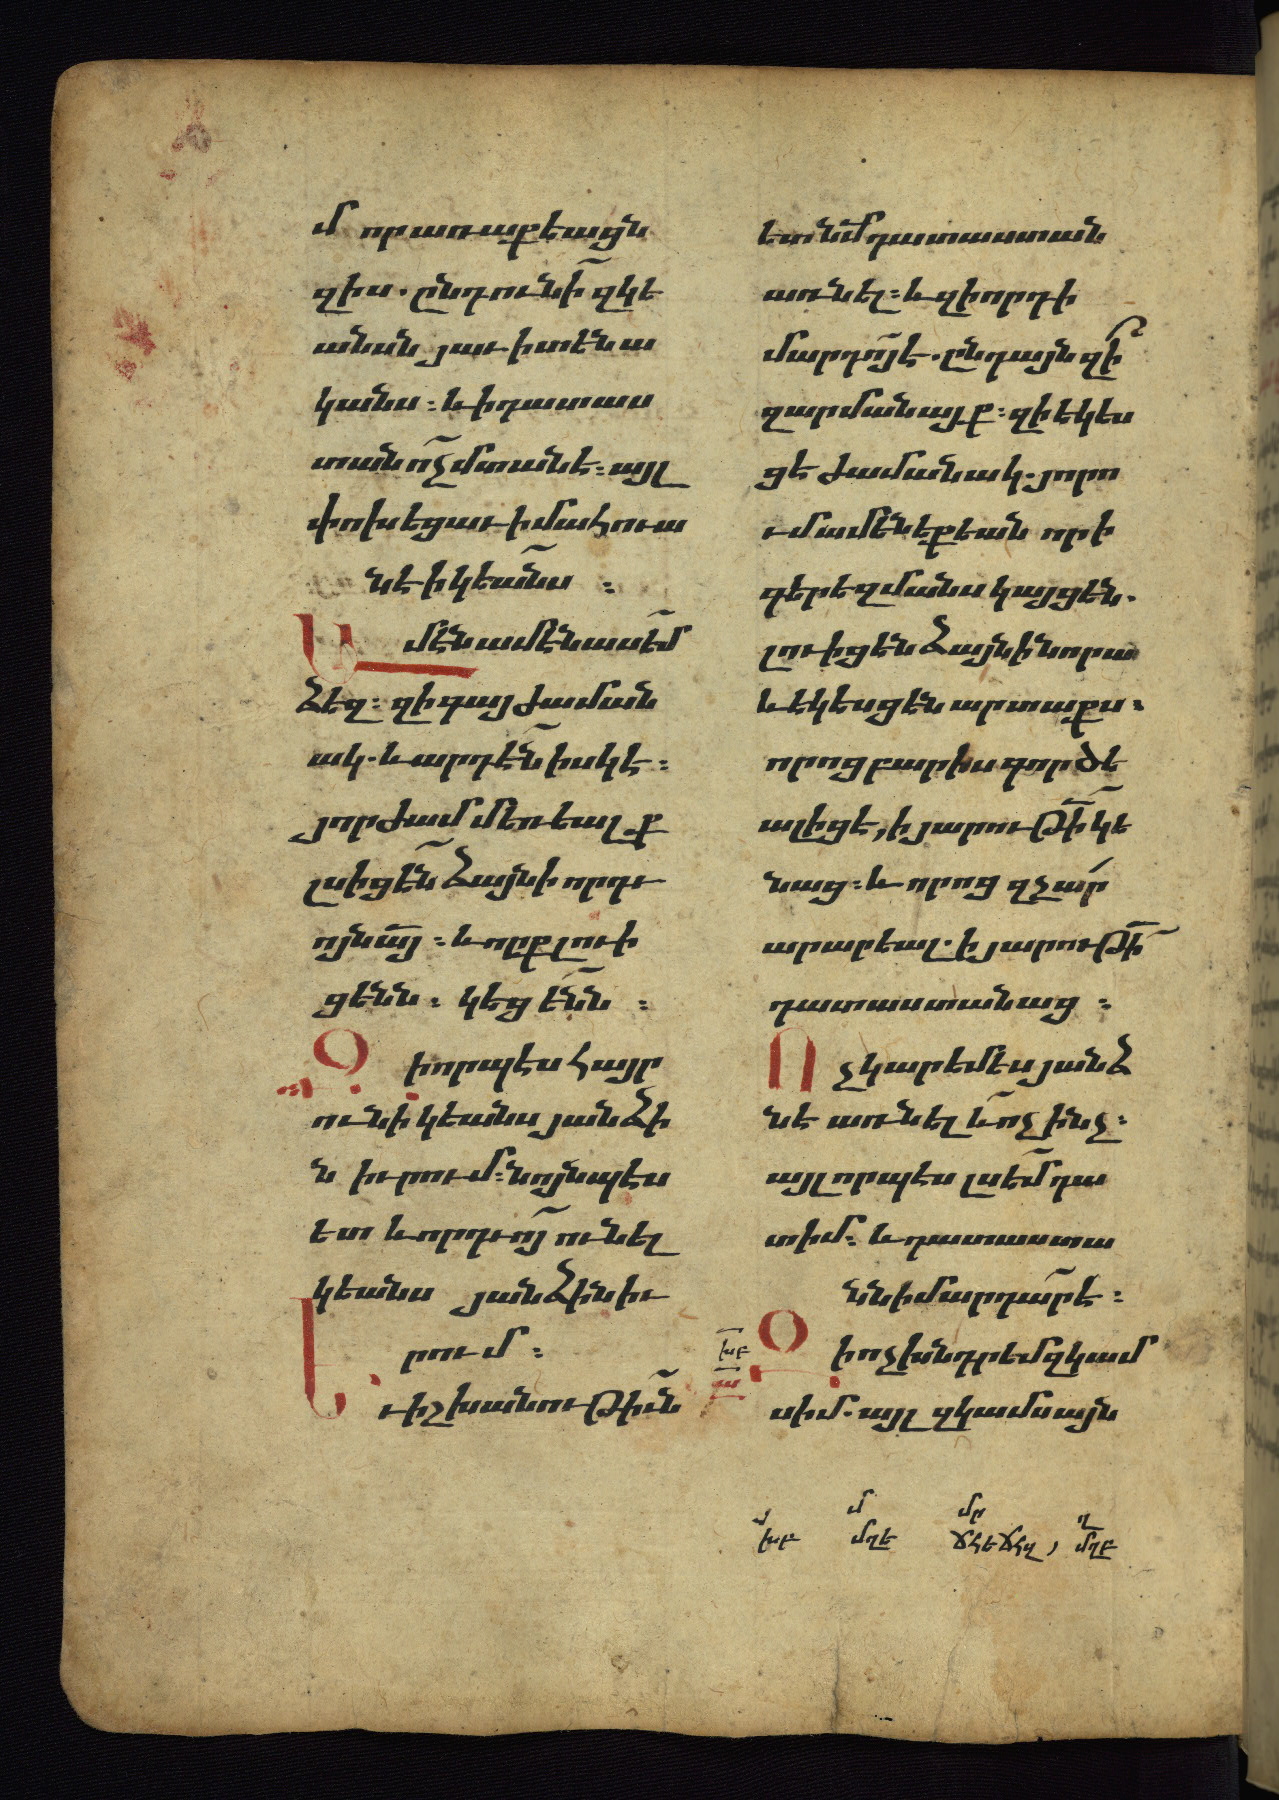 մ որ առաքեացն
զիս. ընդունի զկե
անսն յաւիտենա
կանս։ և ի դատաս
տան ոչ մտանէ։ այլ
փոխեցաւ ի մահուա
նէ ի կեանս ։
Ամէն ամէն ասեմ
ձեզ։ զի գայ ժաման
ակ. և արդէն իսկ է։
յորժամ մեռեալք
լսիցեն ձայնի որդւ
ոյն այ։ և որք լուի
ցենն։ կեցենն ։
Զի որպէս հայր
ունի կեանս յանձի
ն իւրում։ նոյնպէս
ետ և որդւոյ ունել
կեանս յանձին իւ
րում ։
Եւ իշխանութիւն
ետ նմ դատաստան
առնել։ և զի որդի
մարդոյ է. ընդ այն զի
զարմանայք։ զի եկես
ցէ ժամանակ. յորո
ւմ ամենեքեան որ ի
գերեզմանս կայցեն.
լուիցեն ձայնի նորա
և եկեսցեն արտաքս։
որոց բարիս գործե
ալ իցէ, ի յարութի կե
նաց։ և որոց զչար
արարեալ. ի յարութի
դատաստանաց ։
Ոչ կարեմ ես յանձ
նէ առնել և ոչ ինչ։
այլ որպէս լսեմ դա
տիմ։ և դատաստա
նն իմ արդար է ։
խբ
ա
Զի ոչ խնդրեմ զկամ
ս իմ. այլ զկամս այն